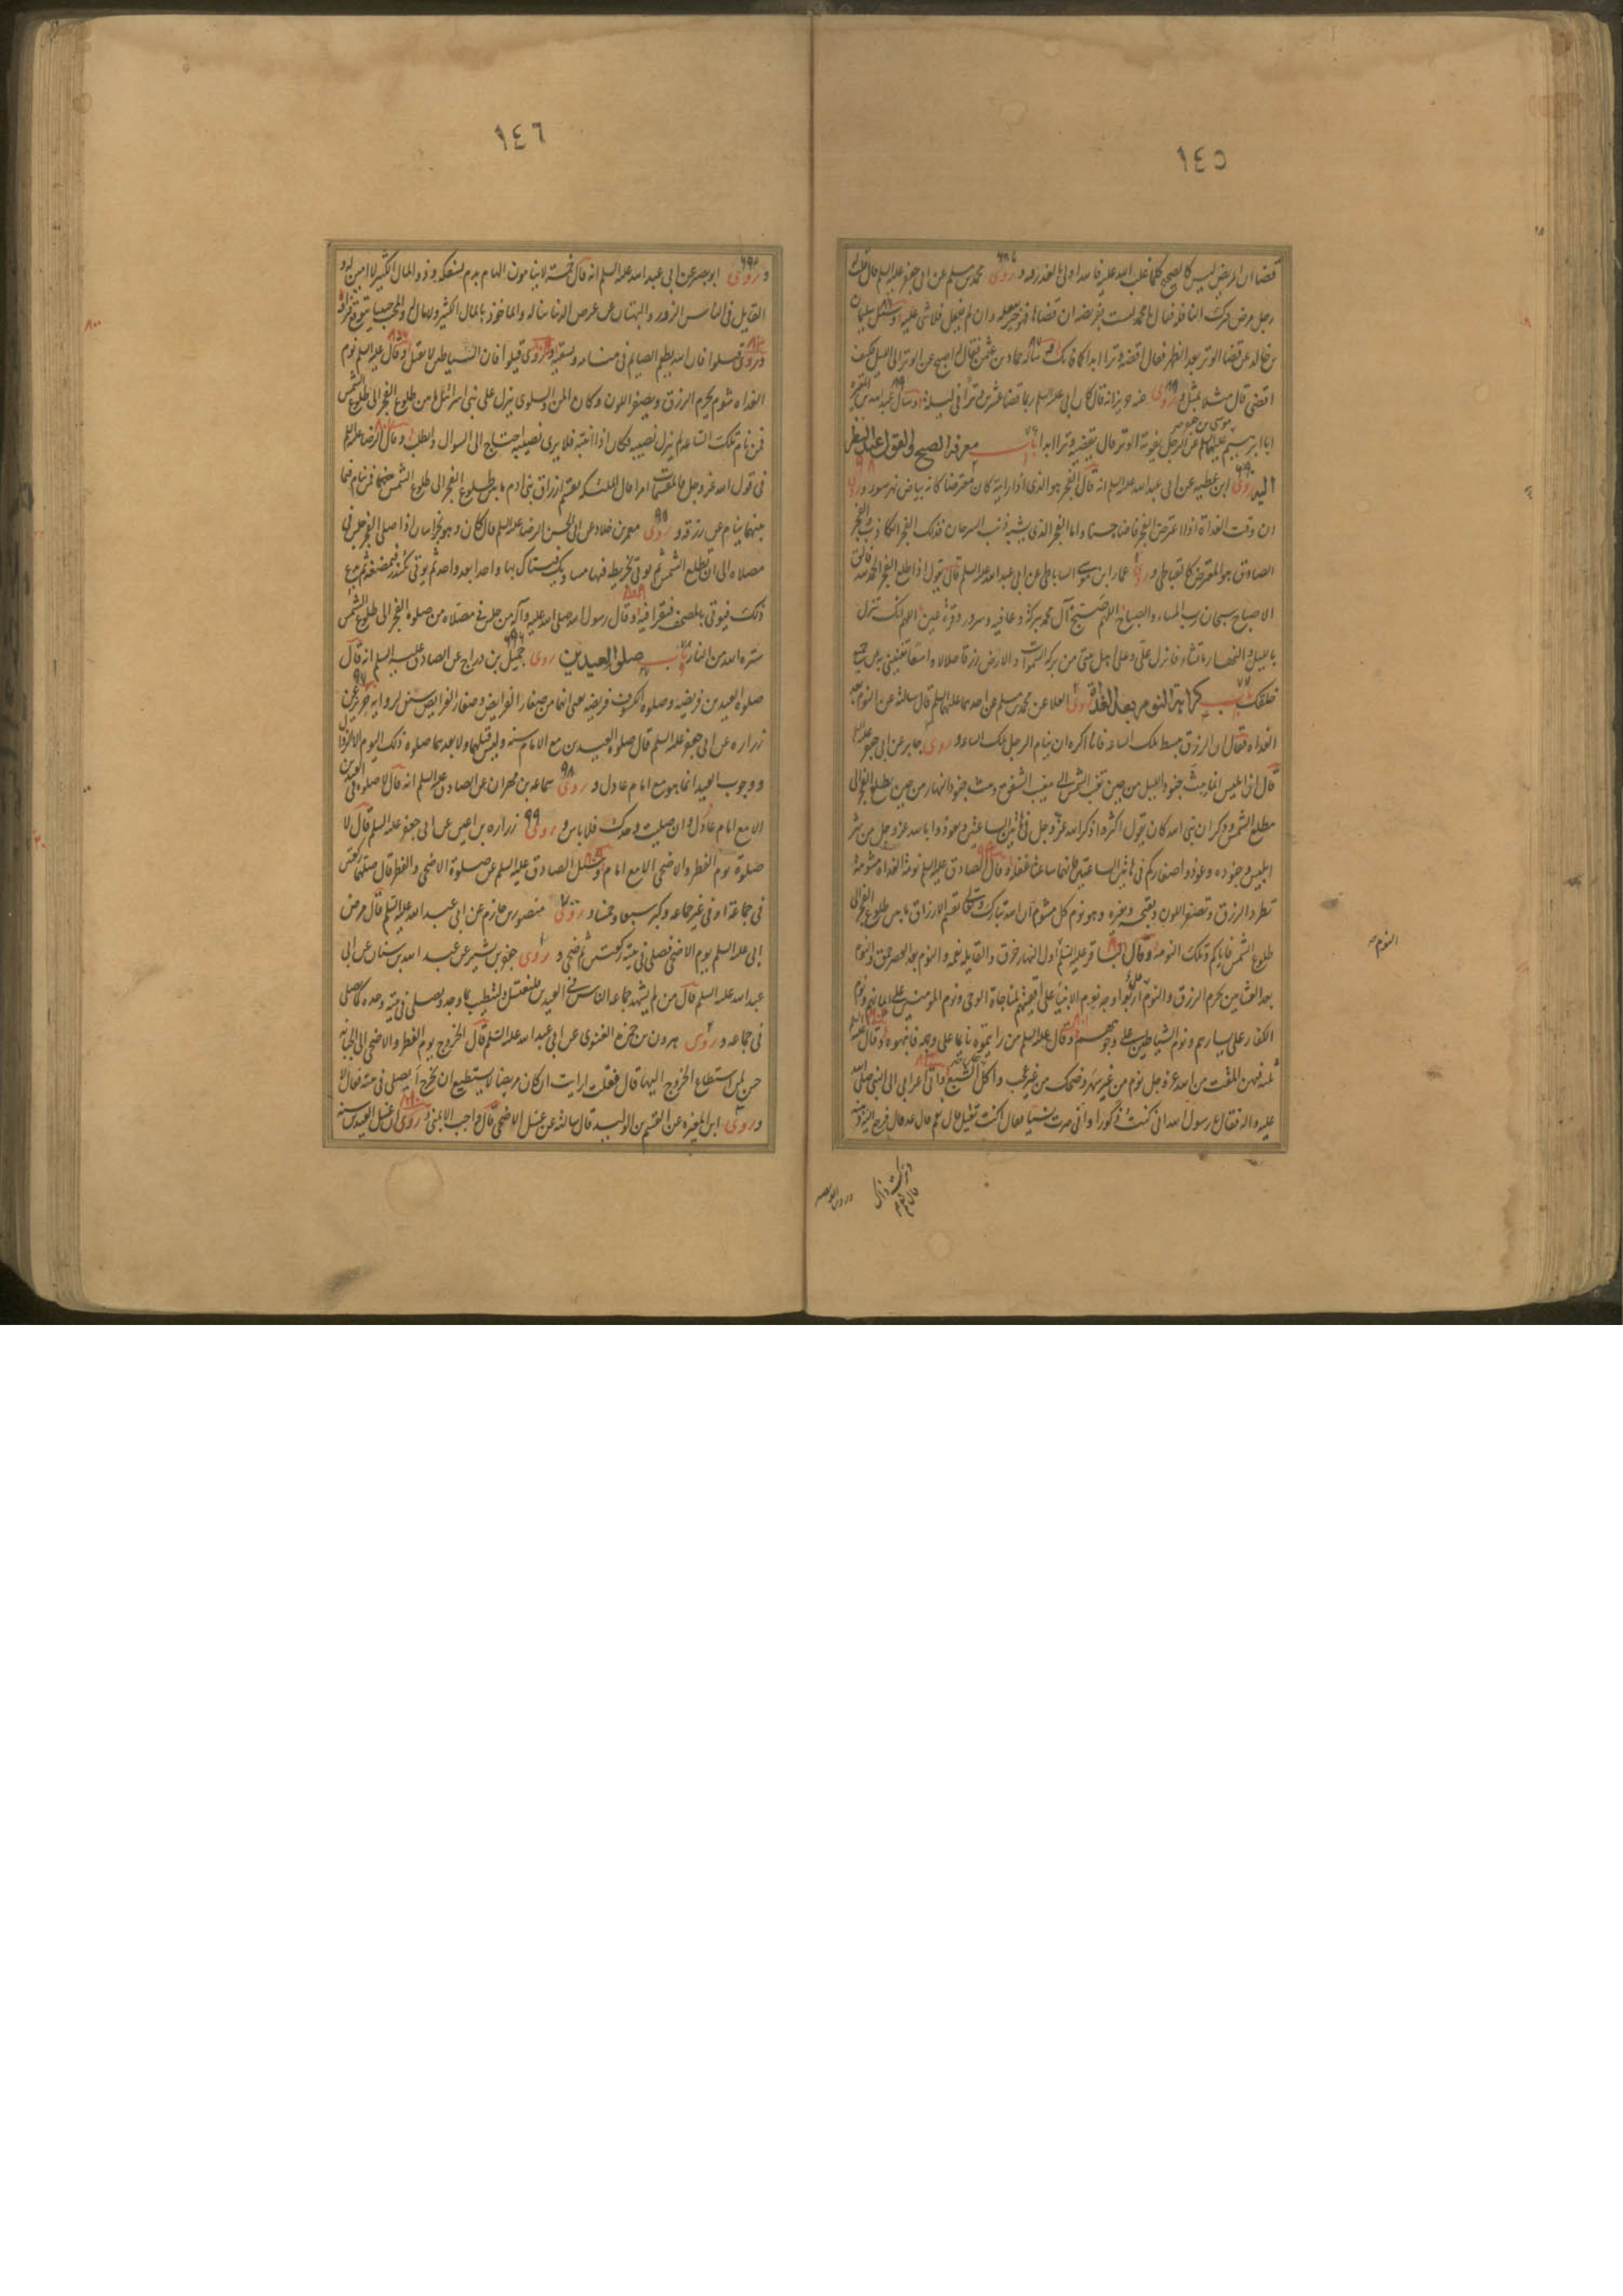 ١٤٥
قضا ان المريض ليس كالصحيح كلما غلب الله عليه فالله اولى بالعذر فيه و روى محمد بن مسلم عن ابى جعفر عليه السلم قال قلت له
رجل مرض فترك النافلة فقال يا محمد ليست بفريضة ان قضاها فهو خير يفعله وان لم يفعل فلا شى عليه و سئل سليمان
بن خالد عن قضا الوتر بعد الظهر فقال اقضه وترا ابدا كما فاتك و ساله حماد بن عثمن فقال اصبح عن الوتر الى الليل فكيف
اقضى قال مثلا بمثل و روى عنه حريز انه قال كان ابى عليه السلم ربما قضا عشرين وترا فى ليلة و سال عبد الله بن المغيرة
موسى بن جعفر
ابا ابرهيم عليهما السلم عن الرجل يفوته الوتر قال يقضيه وترا ابدا باب معرفة الصبح والقول عند النظر
اليه روى ابن عطيه عن ابى عبد الله عليه السلم انه قال الفجر هو الذى اذا رايته كان معترضا كانه بياض نهر سورا و روى
ان وقت الغداة اذا اعترض الفجر فاضا حسنا واما الفجر الذى يشبه ذنب السرحان فذلك الفجر الكاذب والفجر
الصادق هو المعترض كالقباطى و روى عمار بن موسى الساباطى عن ابى عبد الله عليه السلم قال يقول اذا طلع الفجر الحمد لله فالق
الاصباح سبحان رب المساء والصباح اللهم صبح آل محمد ببركة وعافيه وسرور وقرة عين اللهم انك تنزل
بالليل والنهار ما تشاء فانزل على وعلى اهل بيتى من بركة السموات والارض رزقا حلالا واسعا تغنينى به عن جميع
خلقك باب كراهية النوم بعد الغداة روى العلا عن محمد بن مسلم عن احدهما عليهما السلم قال سالته عن النوم بعد
الغداه فقال ان الرزق يبسط تلك الساعه فانا اكره ان ينام الرجل تلك الساعه و روى جابر عن ابى جعفر عليه السلم
قال ان ابليس انما يبث جنود الليل من حين تغيب الشمس الى مغيب الشفق ويبث جنود النهار من حين يطلع الفجر الى
مطلع الشمس وذكر ان نبى الله كان يقول اكثروا ذكر الله عز وجل فى هاتين الساعتين وتعوذوا بالله عز وجل من شر
ابليس وجنوده وعوذوا صغاركم فى هاتين الساعتين فانهما ساعتا غفلة و قال الصادق عليه السلم نومة الغداة مشومة
تطرد الرزق وتصفر اللون وتقبحه وتغيره وهو نوم كل مشوم ان الله تبارك وتعالى يقسم الارزاق ما بين طلوع الفجر الى
طلوع الشمس فاياكم وتلك النومة و قال الباقر عليه السلم النوم اول النهار خرق والقايلة نعمه والنوم بعد العصر حمق والنوم
بعد العشاين يحرم الرزق والنوم على اربعة اوجه نوم الانبيا على اقفيتهم لمناجاة الوحى ونوم المومنين على ايمانهم ونوم
الكفار على يسارهم ونوم الشياطين على وجوههم و قال عليه السلم من رايتموه نايما على وجهه فانبهوه و قال عليه السلم
ثلثة فيهن المقت من الله عز وجل نوم من غير سهر وضحك من غير عجب واكل على الشبع و اتى اعرابى الى النبى صلى الله
عليه واله فقال يا رسول الله انى كنت ذكورا وانى صرت نسيا فقال اكنت تقيل قال نعم قال
النوم
١٤٦
و روى ابو بصير عن ابى عبد الله عليه السلم انه قال خمسة لا ينامون الهام بدم يسفكه وذو المال الكثير لا امين له و
القايل فى الناس الزور والبهتان عن عرض الدنيا يناله والماخوذ بالمال الكثير ولا مال له والمحب حبيبا يتوقع فراقه
و روى قيلوا فان الله يطعم الصايم فى منامه ويسقيه و روى قيلوا فان الشياطين لا تقيل و قال عليه السلم نوم
الغداه شوم يحرم الرزق ويصفر اللون وكان المن والسلوى ينزل على بنى اسرائيل ما بين طلوع الفجر الى طلوع الشمس
فمن نام تلك الساعه لم ينزل نصيبه وكان اذا انتبه فلا يرى نصيبه احتاج الى السوال والطلب و قال الرضا عليه السلم
فى قول الله عز وجل فالمقسمات امرا قال الملئكه تقسم ارزاق بنى ادم ما بين طلوع الفجر الى طلوع الشمس فمن نام فيما
بينهما ينام عن رزقه و روى معمر بن خلاد عن ابى الحسن الرضا عليه السلم قال كان وهو بخراسان اذا صلى الفجر جلس فى
مصلاه الى ان تطلع الشمس ثم يوتى بخريطه فيها مساويك فيستاك بها واحدا بعد واحد ثم يوتى بكندر فيمضغه ثم يدع
ذلك فيوتى بالمصحف فيقرا فيه و قال رسول الله صلى الله عليه وآله من جلس فى مصلاه من صلوة الفجر الى طلوع الشمس
ستره الله من النار باب صلوة العيدين روى جميل بن دراج عن الصادق عليه السلم انه قال
صلوة العيدين فريضة وصلوة الكسوف فريضه يعنى انهما من صغار الفرايض وصغار الفرايض سنن لرواية حريز عن
زراره عن ابى جعفر عليه السلم قال صلوة العيدين مع الامام سنه وليس قبلهما ولا بعدهما صلوة ذلك اليوم الا الزوال
ووجوب العيد انما هو مع امام عادل و روى سماعه بن مهران عن الصادق عليه السلم انه قال لا صلوة فى العيدين
الا مع امام عادل وان صليت وحدك فلا باس و روى زراره بن اعين عن ابى جعفر عليه السلم قال لا
صلوة يوم الفطر والاضحى الا مع امام و سئل الصادق عليه السلم عن صلوة الاضحى والفطر قال صلهما ركعتين
فى جماعة او فى غير جماعه وكبر سبعا وخمسا و روى منصور بن حازم عن ابى عبد الله عليه السلم قال مرض
ابى عليه السلم يوم الاضحى فصلى فى بيته ركعتين ثم ضحى و روى جعفر بن بشير عن عبد الله بن سنان عن ابى
عبد الله عليه السلم قال من لم يشهد جماعه الناس فى العيدين فليغتسل وليتطيب بما وجد وليصلى فى بيته وحده كما يصلى
فى جماعه و روى هرون بن حمزه الغنوى عن ابى عبد الله عليه السلم قال الخروج يوم الفطر والاضحى الى الجبانه
حسن لمن استطاع الخروج اليها قال فقلت ارايت ان كان مريضا لا يستطيع ان يخرج ايصلى فى بيته فقال لا
و روى ابن المغيره عن القسم بن الوليد قال سالته عن غسل الاضحى قال واجب الا بمنى و روى ان غسل العيدين سنه